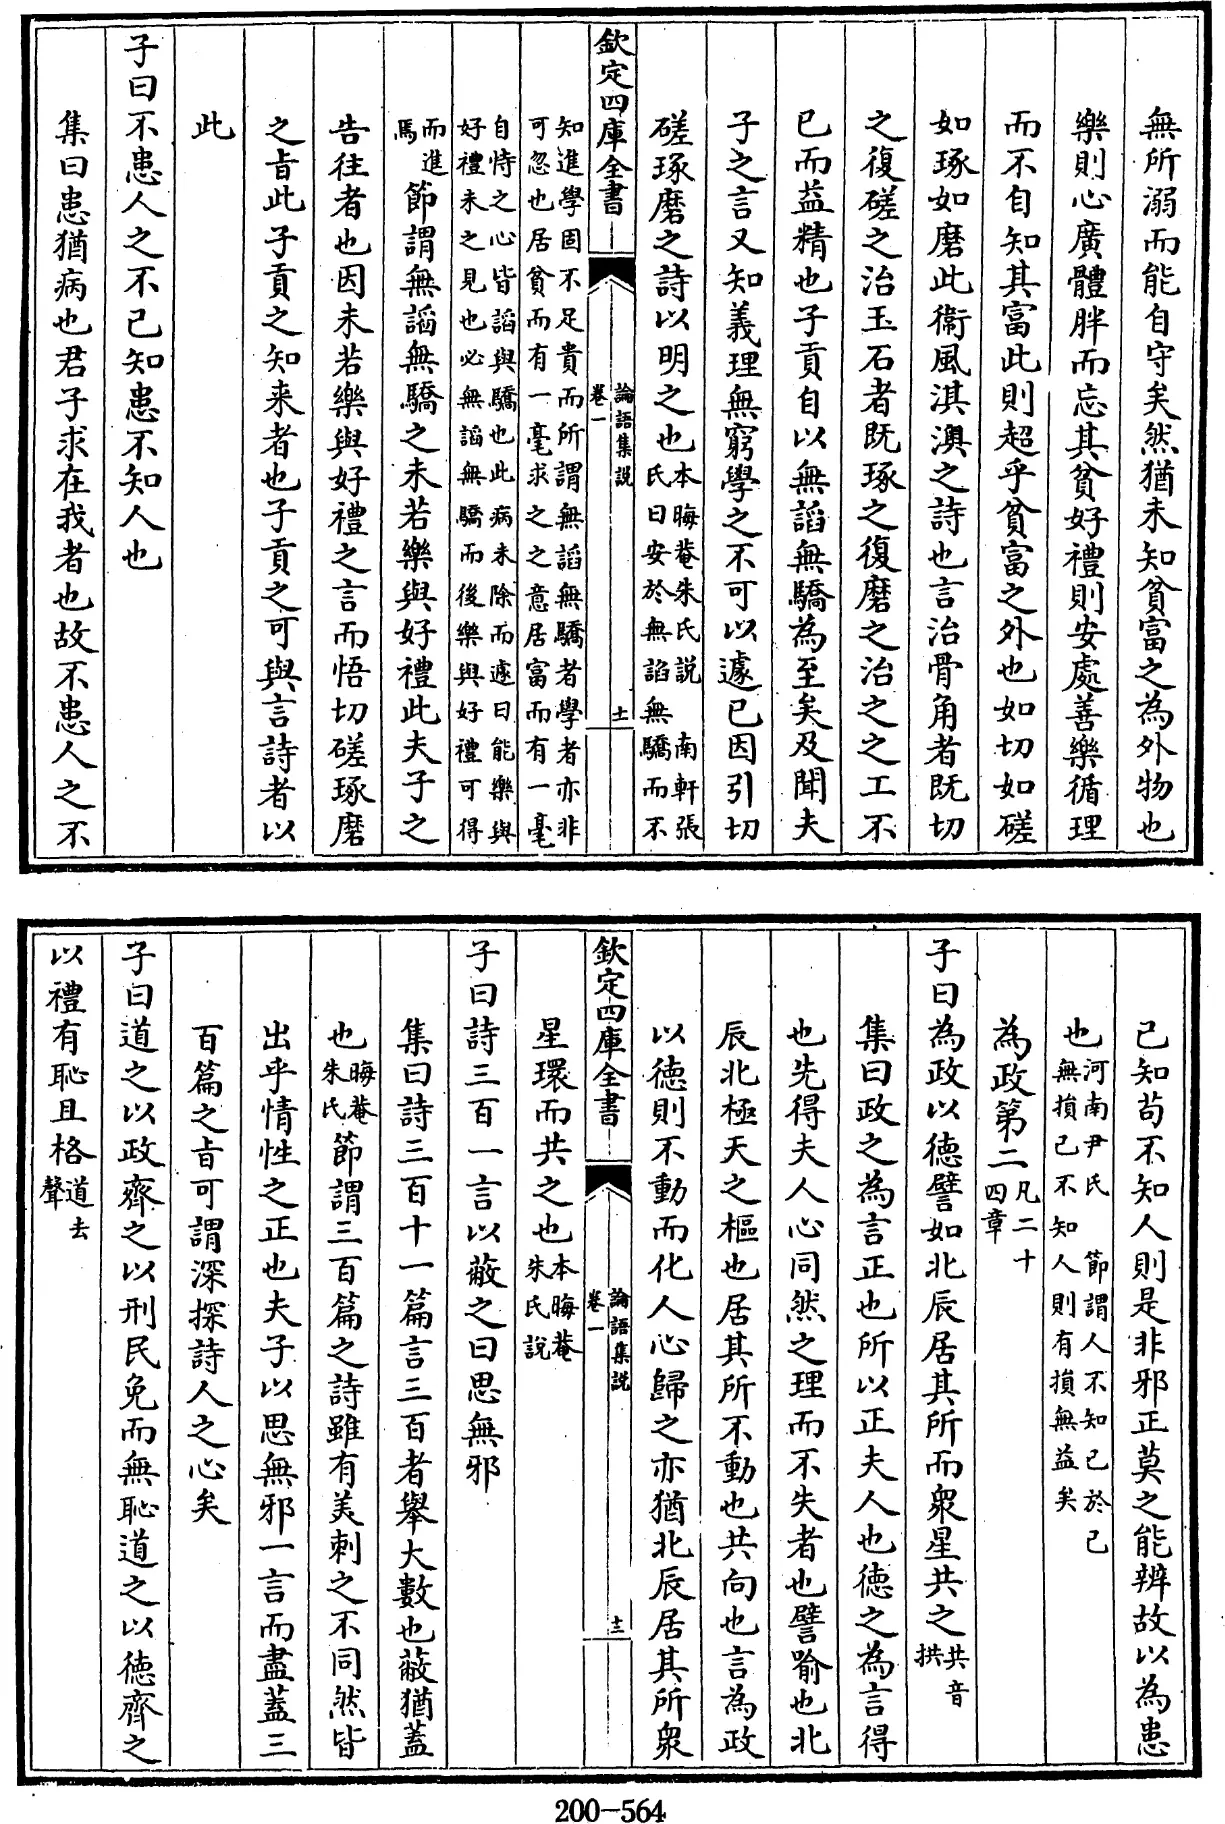 無所溺而能自守矣然猶未知貧富之為外物也
樂則心廣體胖而忘其貧好禮則安處善樂循理
而不自知其富此則超乎貧富之外也如切如磋
如琢如磨此衛風淇澳之詩也言治骨角者既切
之復磋之治玉石者既琢之復磨之治之之工不
已而益精也子貢自以無諂無驕為至矣及聞夫
子之言又知義理無窮學之不可以遽已因引切
磋琢磨之詩以明之也本晦菴朱氏說 南軒張氏曰安於無諂無驕而不
欽定四庫全書 論語集說 卷一 十一
知進學固不足貴而所謂無諂無驕者學者亦非可忽也居貧而有一毫求之之意居富而有一毫
自恃之心皆諂與驕也此病未除而遽曰能樂與好禮未之見也必無諂無驕而後樂與好禮可得
而進焉節謂無諂無驕之未若樂與好禮此夫子之
告往者也因未若樂與好禮之言而悟切磋琢磨
之旨此子貢之知來者也子貢之可與言詩者以
此
子曰不患人之不己知患不知人也
集曰患猶病也君子求在我者也故不患人之不
已知苟不知人則是非邪正莫之能辨故以為患
也河南尹氏 節謂人不知已於己無損己不知人則有損無益矣
為政第二凡二十四章
子曰為政以德譬如北辰居其所而衆星共之共音拱
集曰政之為言正也所以正夫人也德之為言得
也先得夫人心同然之理而不失者也譬喻也北
辰北極天之樞也居其所不動也共向也言為政
以德則不動而化人心歸之亦猶北辰居其所衆
欽定四庫全書 論語集說 卷一 十二
星環而共之也本晦菴朱氏說
子曰詩三百一言以蔽之曰思無邪
集曰詩三百十一篇言三百者舉大數也蔽猶蓋
也晦菴朱氏節謂三百篇之詩雖有美刺之不同然皆
出乎情性之正也夫子以思無邪一言而盡蓋三
百篇之旨可謂深探詩人之心矣
子曰道之以政齊之以刑民免而無恥道之以德齊之
以禮有恥且格道去聲
200-564